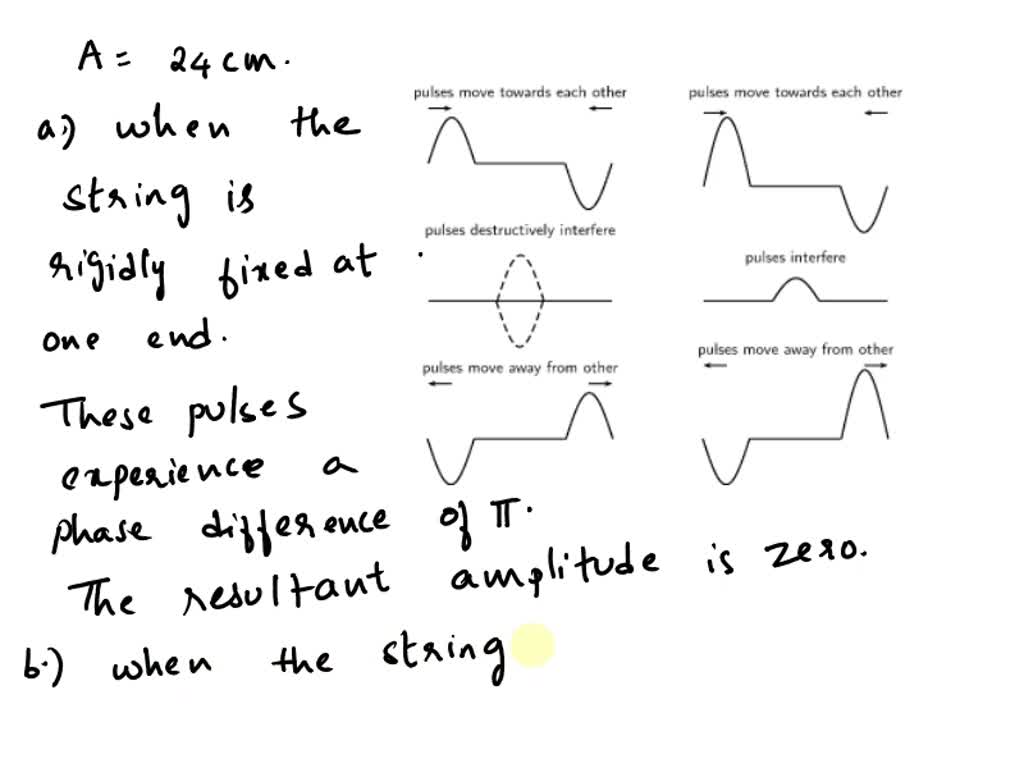 A = 24 cm.
a.) when the
string is
rigidly fixed at
one end.
These pulses
experience a
phase difference of π.
The resultant amplitude is zero.
b.) when the string
pulses move towards each other
pulses destructively interfere
pulses move away from other
pulses move towards each other
pulses interfere
pulses move away from other